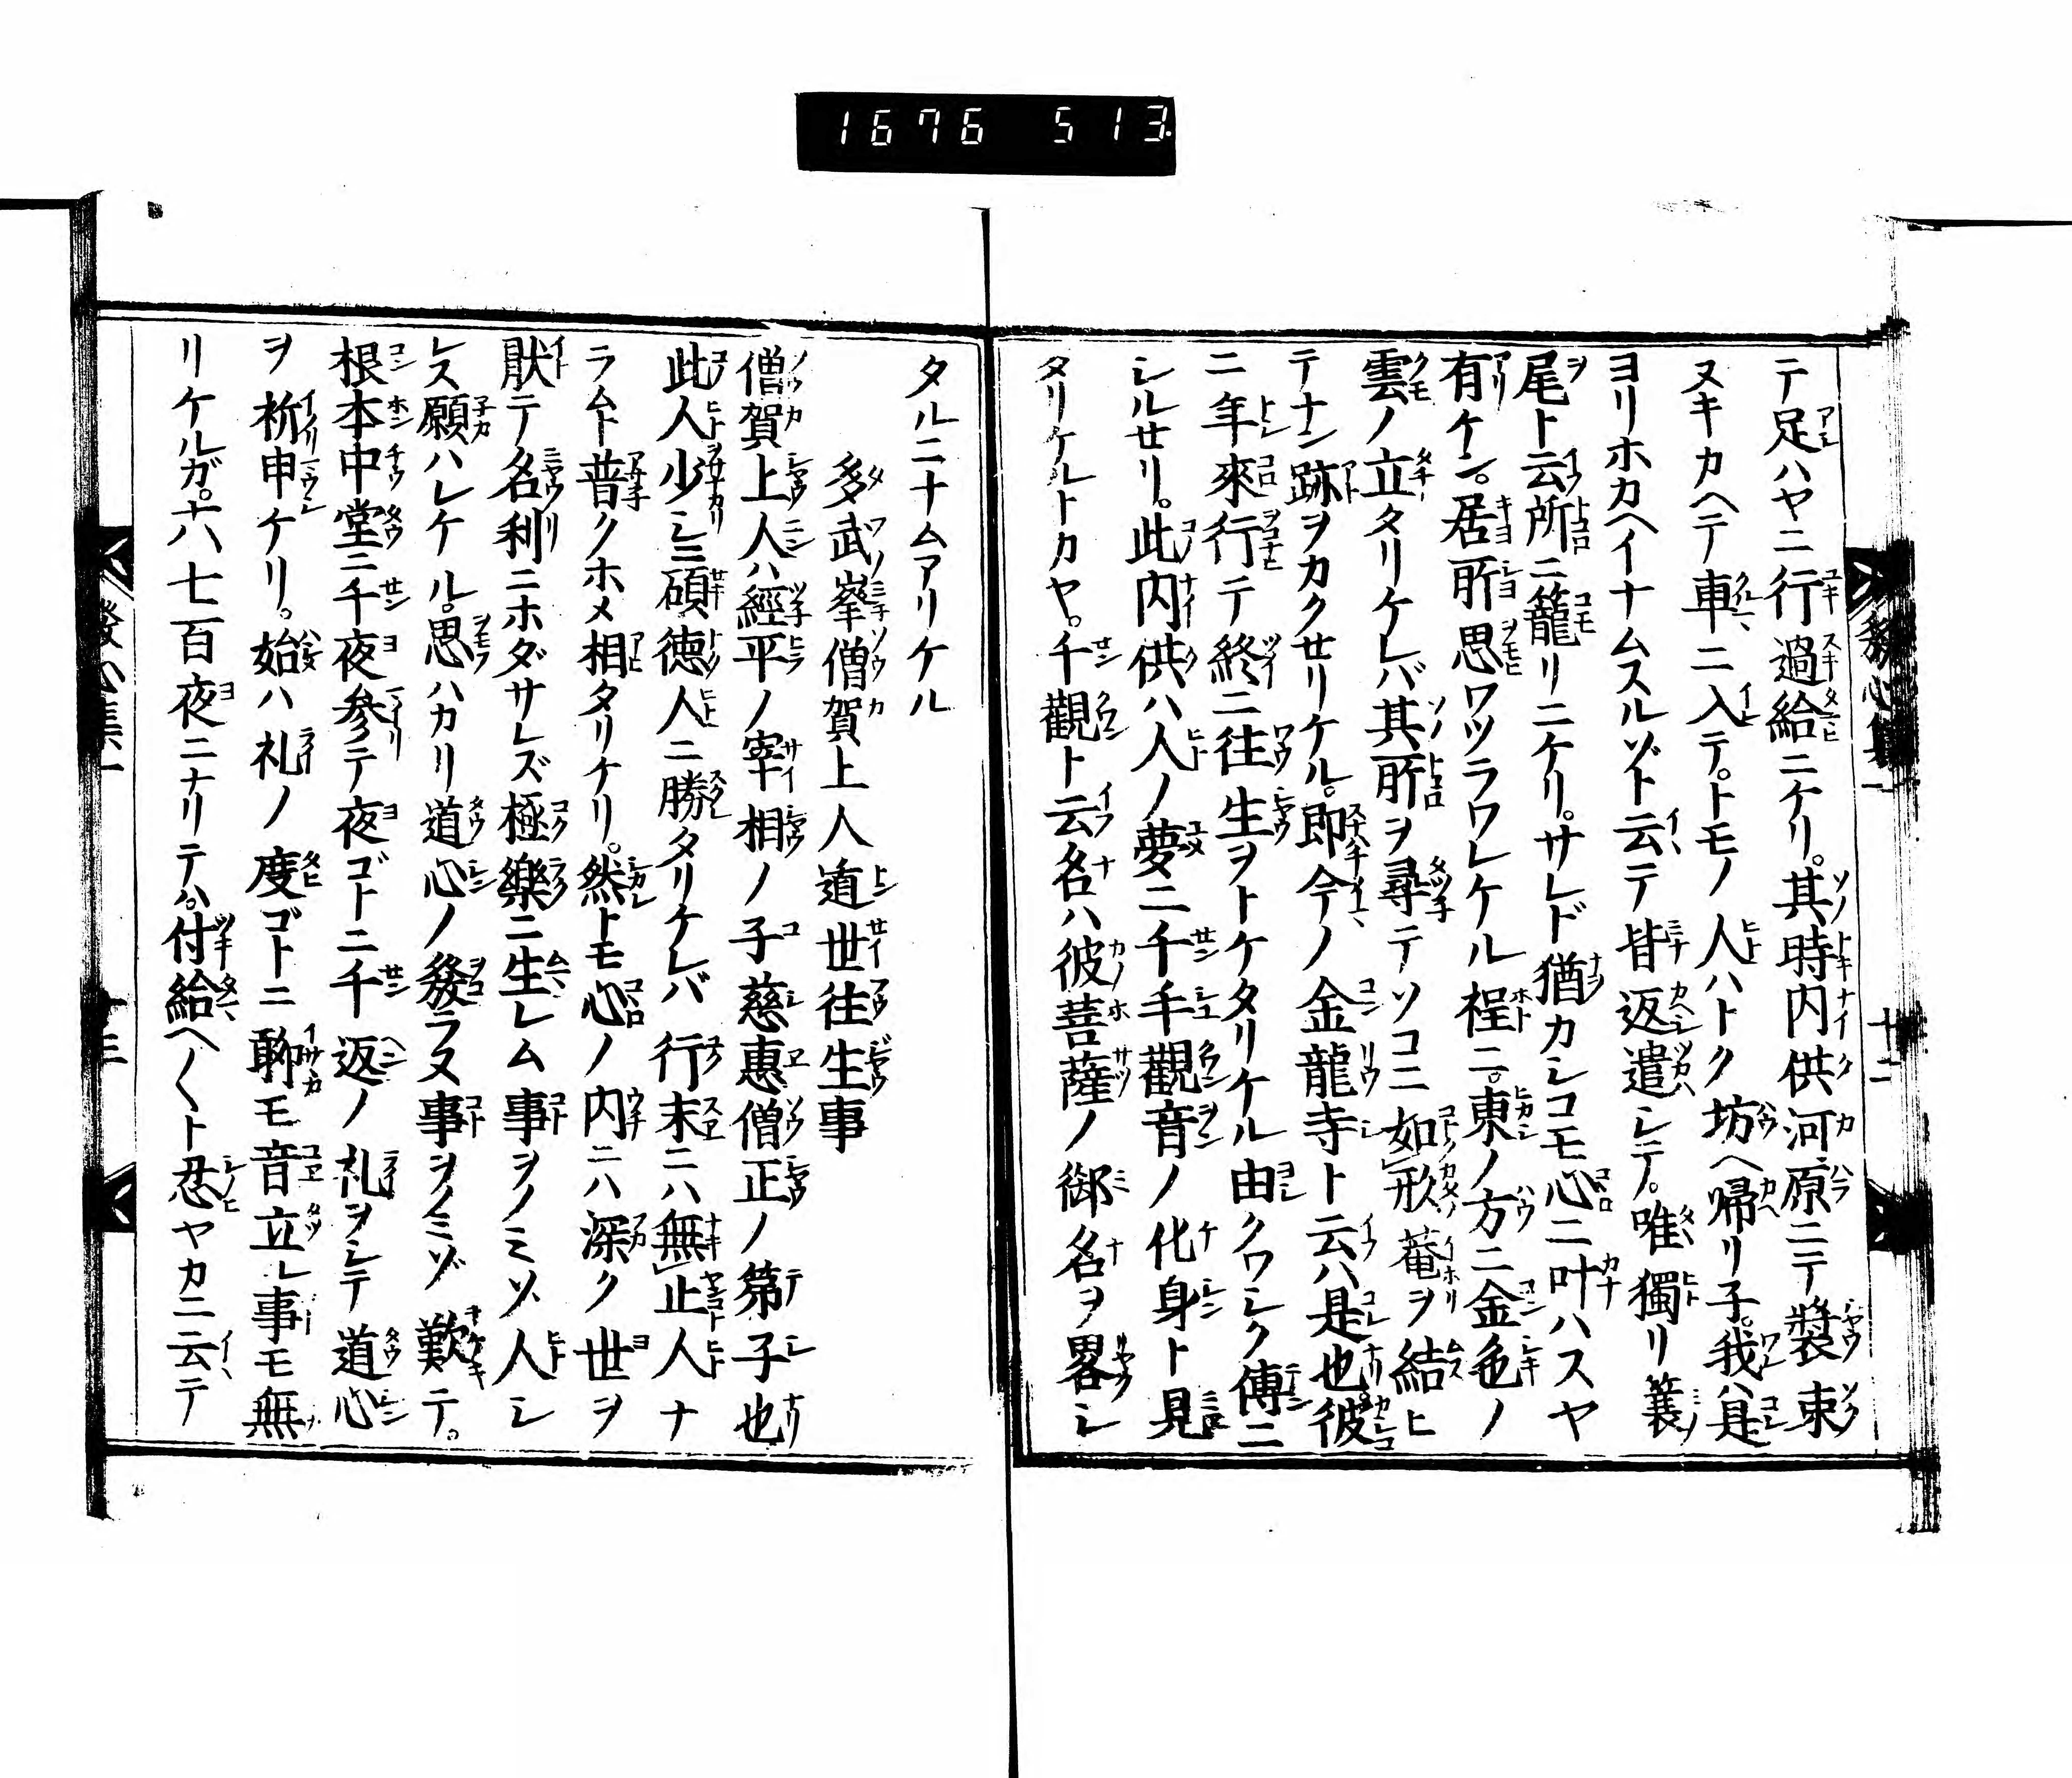 1676 513
テ足ハヤニ行過給ニケリ。其時内供河原ニテ裝束
ヌキカヘテ車ニ入テ。トモノ人ハトク坊ヘ帰リ子。我ハ是
ヨリホカヘイナムスルゾト云テ皆返遣シテ。唯獨リ簑
尾ト云所ニ籠リニケリ。サレド猶カシコモ心ニ叶ハスヤ
有ケン。居所思ワツラワレケル程ニ。東ノ方ニ金色ノ
雲ノ立タリケレバ其所ヲ尋テソコニ如形菴ヲ結ヒ
テナン跡ヲカクせリケル。即今ノ金龍寺ト云ハ是也彼
ニ年來行テ終ニ往生ヲトケタリケル由クワシク傳ニ
シルせリ。此内供ハ人ノ夢ニ千手觀音ノ化身ト見
タリケルトカヤ。千觀ト云名ハ彼菩薩ノ御名ヲ畧シ
發心集一
十二
タルニナムアリケル
多武峯僧賀上人遁世往生事
僧賀上人ハ經平ノ宰相ノ子慈惠僧正ノ第子也
此人少シ碩徳人ニ勝タリケレバ行末ニハ無止人ナ
ラムト普クホメ相タリケリ。然トモ心ノ内ニハ深ク世ヲ
猒テ名利ニホダサレズ極樂ニ生レム事ヲノミソ人シ
レス願ハレケル。思ハカリ道心ノ發ラヌ事ヲノミゾ歎テ。
根本中堂ニ千夜参テ夜ゴトニ千返ノ礼ヲシテ道心
ヲ祈申ケリ。始ハ礼ノ度ゴトニ聊モ音立ル事モ無
リケルガ。六七百夜ニナリテハ。付給ヘ〱ト忍ヤカニ云テ
發心集一
十三